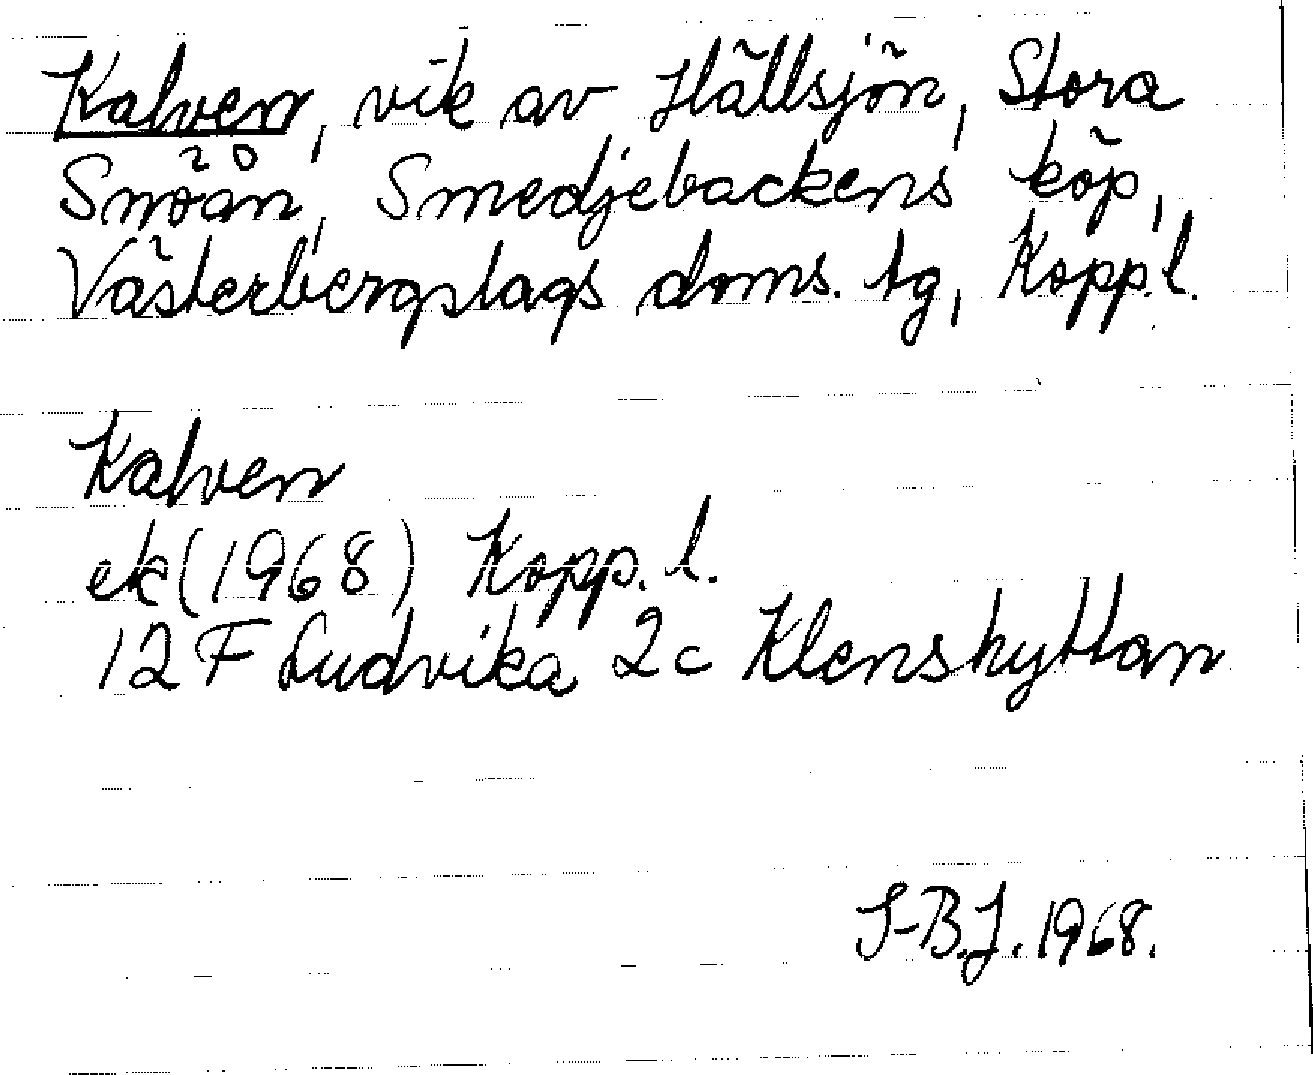 Kalven, vik av Hällsjön, Stora
Snöån, Smedjebackens köp,
Västerbergslags doms. tg, Kopp.l.
Kalven
ek (1968) Kopp. l.
12 F Ludvika 2c Klenshyttan
I-B.J. 1968.